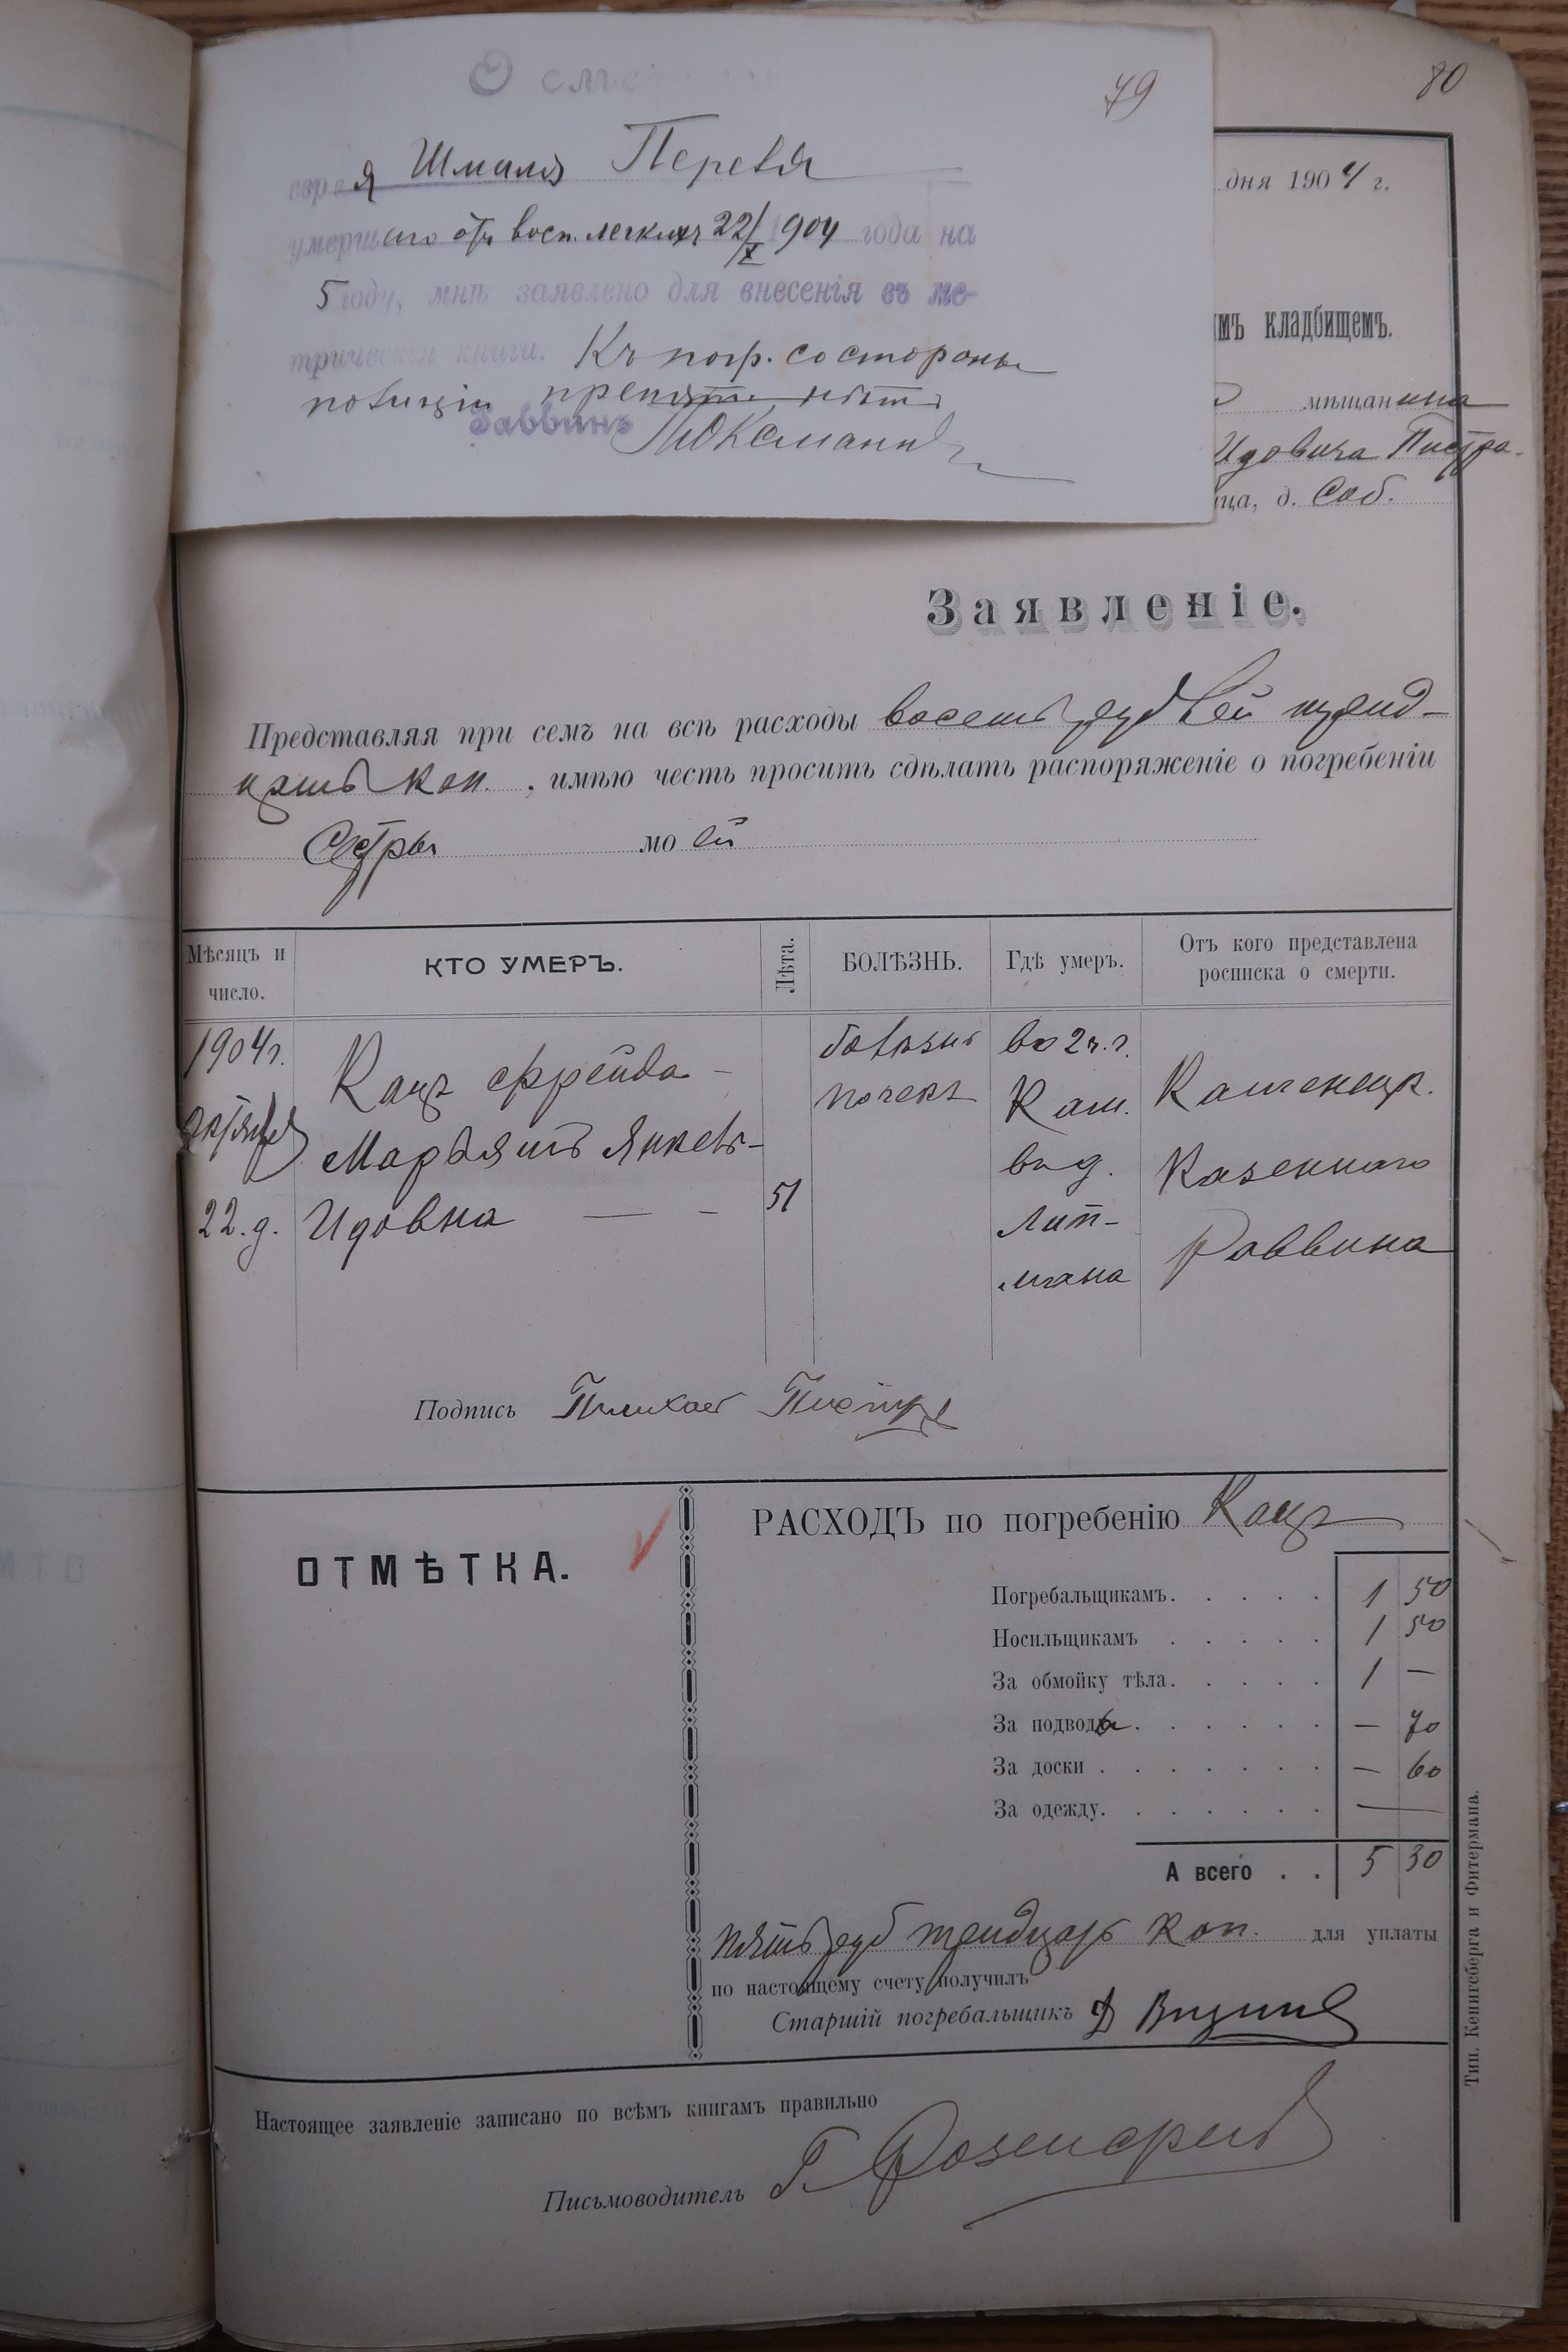 О сме
79
80
еврея Шмиля Перевя
умершаго отъ восп. легкихъ 22/X 1904 года на
5 году, мнѣ заявлено для внесенія въ ме-
трическія книги. Къ погр. со стороны
полиціи препятст. нѣтъ
Раввинъ
дня 1904 г.
имъ кладбищемъ.
мѣщанина
Идовича Пистра-
ица, д. Соб.
Заявленіе.
Представляя при семъ на всѣ расходы восемь рублей тридцать
коп., имѣю честь просить сдѣлать распоряженіе о погребеніи
Сестры моей
Мѣсяцъ и число.
КТО УМЕРЪ.
Лѣта.
БОЛѢЗНЬ.
Гдѣ умеръ.
Отъ кого представлена росписка о смерти.
1904 г.
октября
22. д.
Кацъ Фрейда-
Марьямъ Янкель-
Идовна
51
болѣзнь
почекъ
во 2 ч. г.
Кам.
въ д.
Лит-
мана
Каменецк.
Казеннаго
Раввина
Подпись Пинхас
ОТМѢТКА.
РАСХОДЪ по погребенію Кацъ
Погребальщикамъ. 1 50
Носильщикамъ 1 50
За обмойку тѣла. 1 —
За подводы. — 70
За доски. — 60
За одежду. —
А всего . . 5 30
пять руб тридцать коп. для уплаты
по настоящему счету получилъ
Старшій погребальщикъ
Настоящее заявленіе записано по всѣмъ книгамъ правильно
Письмоводитель Г.
Тип. Кенигсберга и Фитермана.